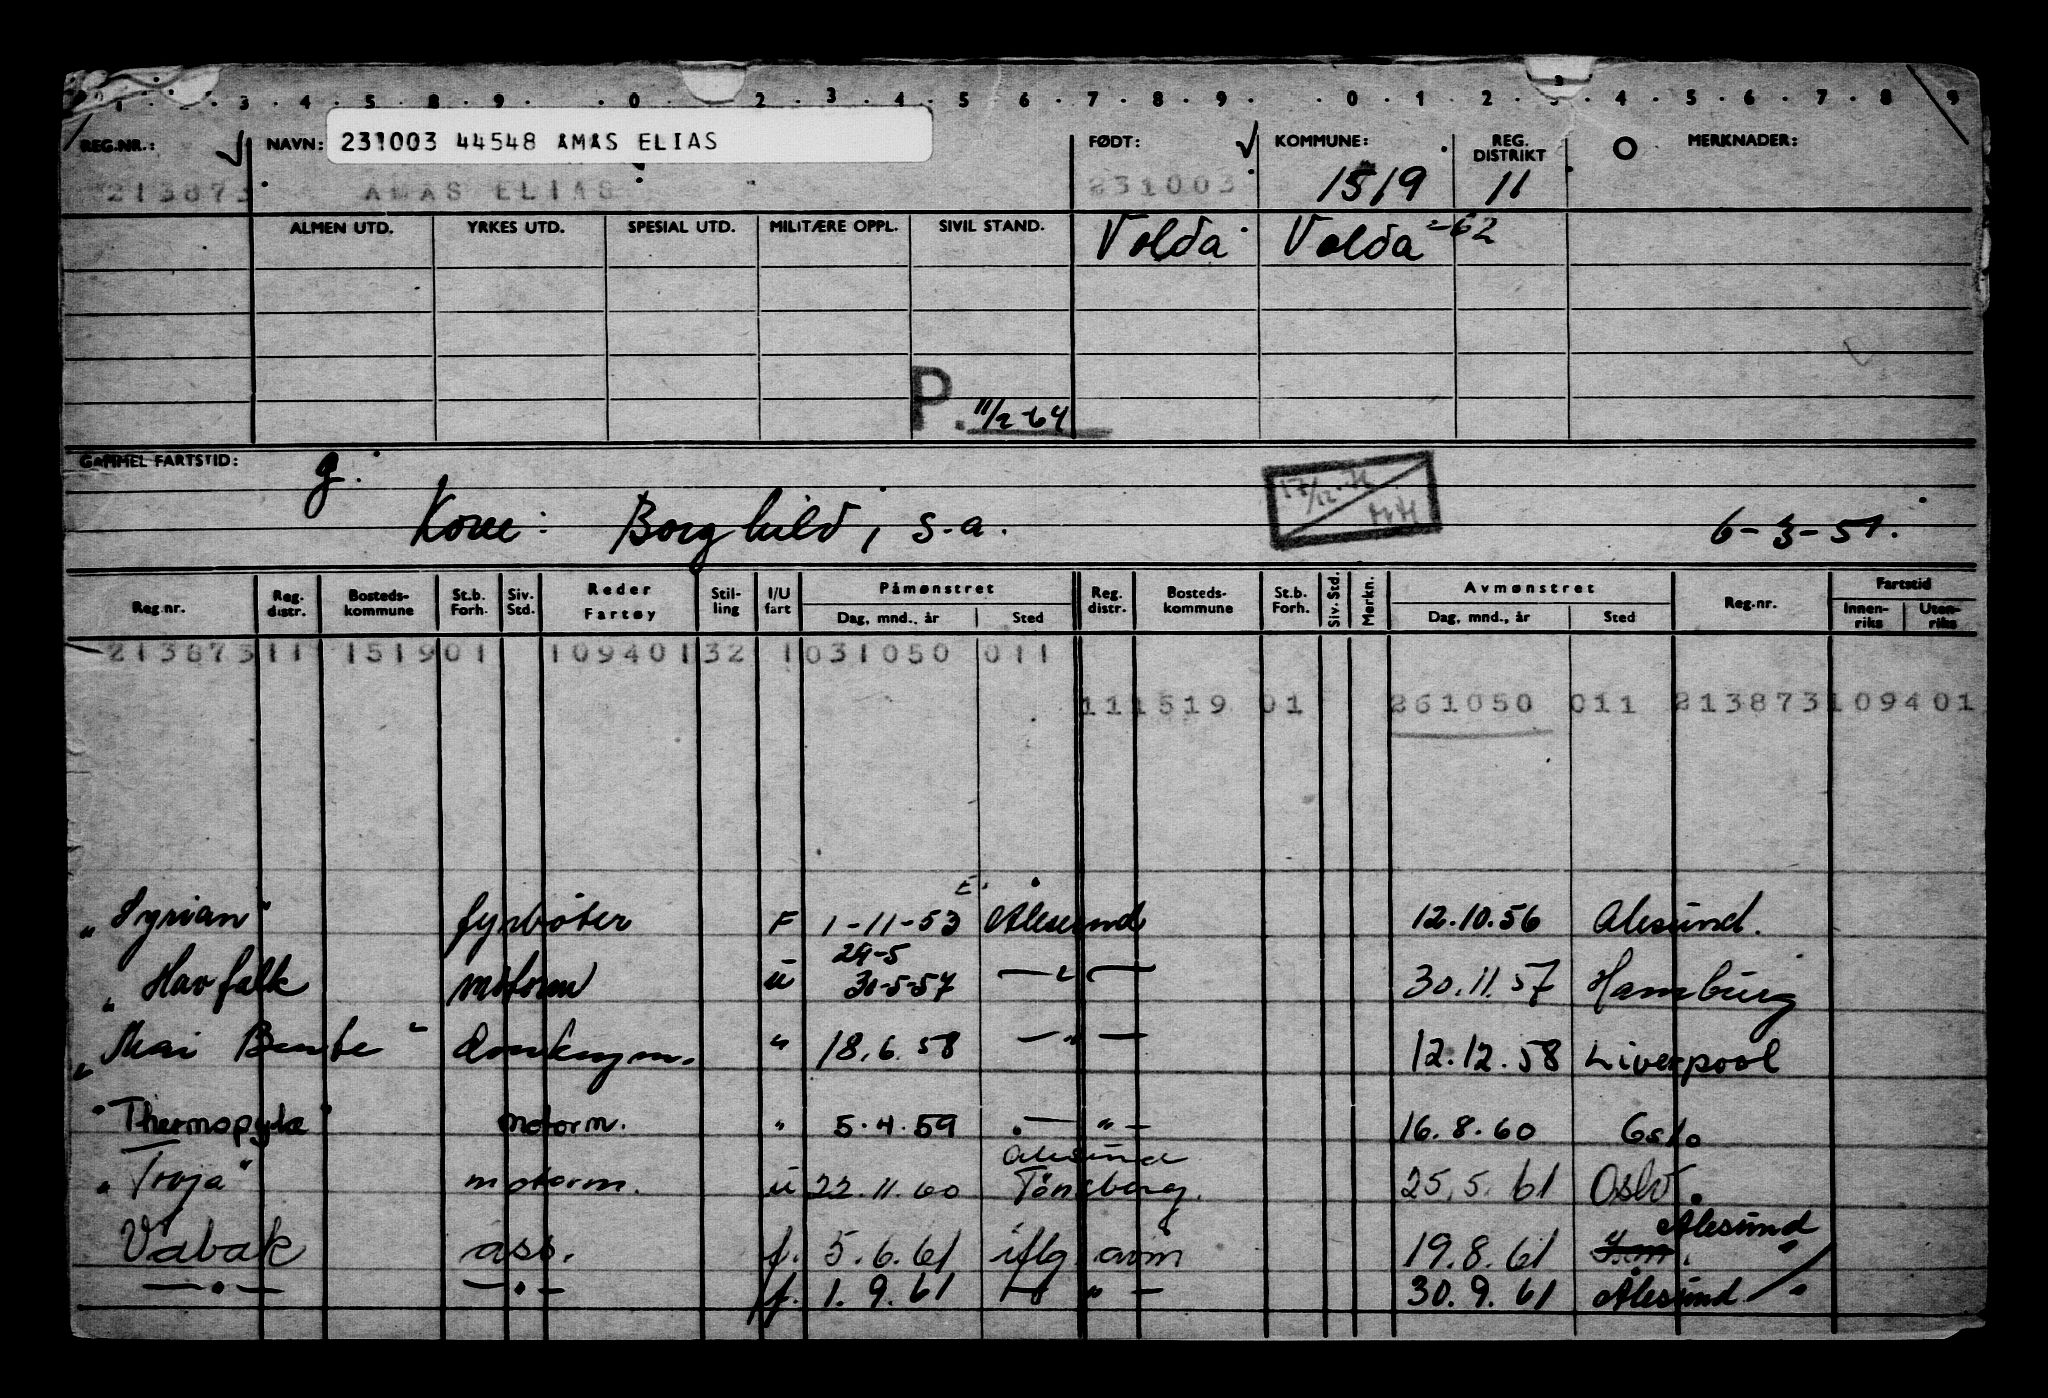 1 . . 3 . 4 . 5 . 8 . 9 . . 0 . . 2 . 3 . 4 . 5 . 6 . 7 . 8 . 9 . . 0 . 1 . 2 . 3 . 4 . 5 . 6 . 7 . 8 9
REG.NR.: NAVN: 231003 44548 AMAS ELIAS FØDT: KOMMUNE: REG. DISTRIKT MERKNADER:
213873 AMAS ELIAS 231003 1519 11
ALMEN UTD. YRKES UTD. SPESIAL UTD. MILITÆRE OPPL. SIVIL STAND. Volda Volda -62
P. 11/2-64
GAMMEL FARTSTID: g.
Kone: Borghild, s.a. 6-3-51.
Reg.nr. Reg. distr. Bosteds- kommune St.b. Forh. Siv. Std. Reder Fartøy Stil- ling I/U fart Påmønstret Dag, mnd., år Sted Reg. distr. Bosteds- kommune St.b. Forh. Siv. Std. Merkn. Avmønstret Dag, mnd., år Sted Reg.nr. Fartstid Innen- riks Uten- riks
213873 11 1519 01 109401 32 1 031050 011
11 1519 01 261050 011 213873 109401
"Syrian" fyrbøter F 1-11-53 Ålesund 12.10.56 Ålesund.
29-5
"Havfalk motorm u 30-5-57 — " — 30.11.57 Hamburg
"Mai Bente" donkeym. " 18.6.58 — " — 12.12.58 Liverpool
"Thermopylæ" motorm. " 5.4.59 — " — 16.8.60 Oslo
Ålesund
"Troja" motorm. u 22.11.60 Tönsberg. 25.5.61 Oslo.
Ålesund
Vabak ass. f. 5.6.61 iflg. avm 19.8.61 "
— " — — " — f. 1.9.61 — " — 30.9.61 Ålesund "